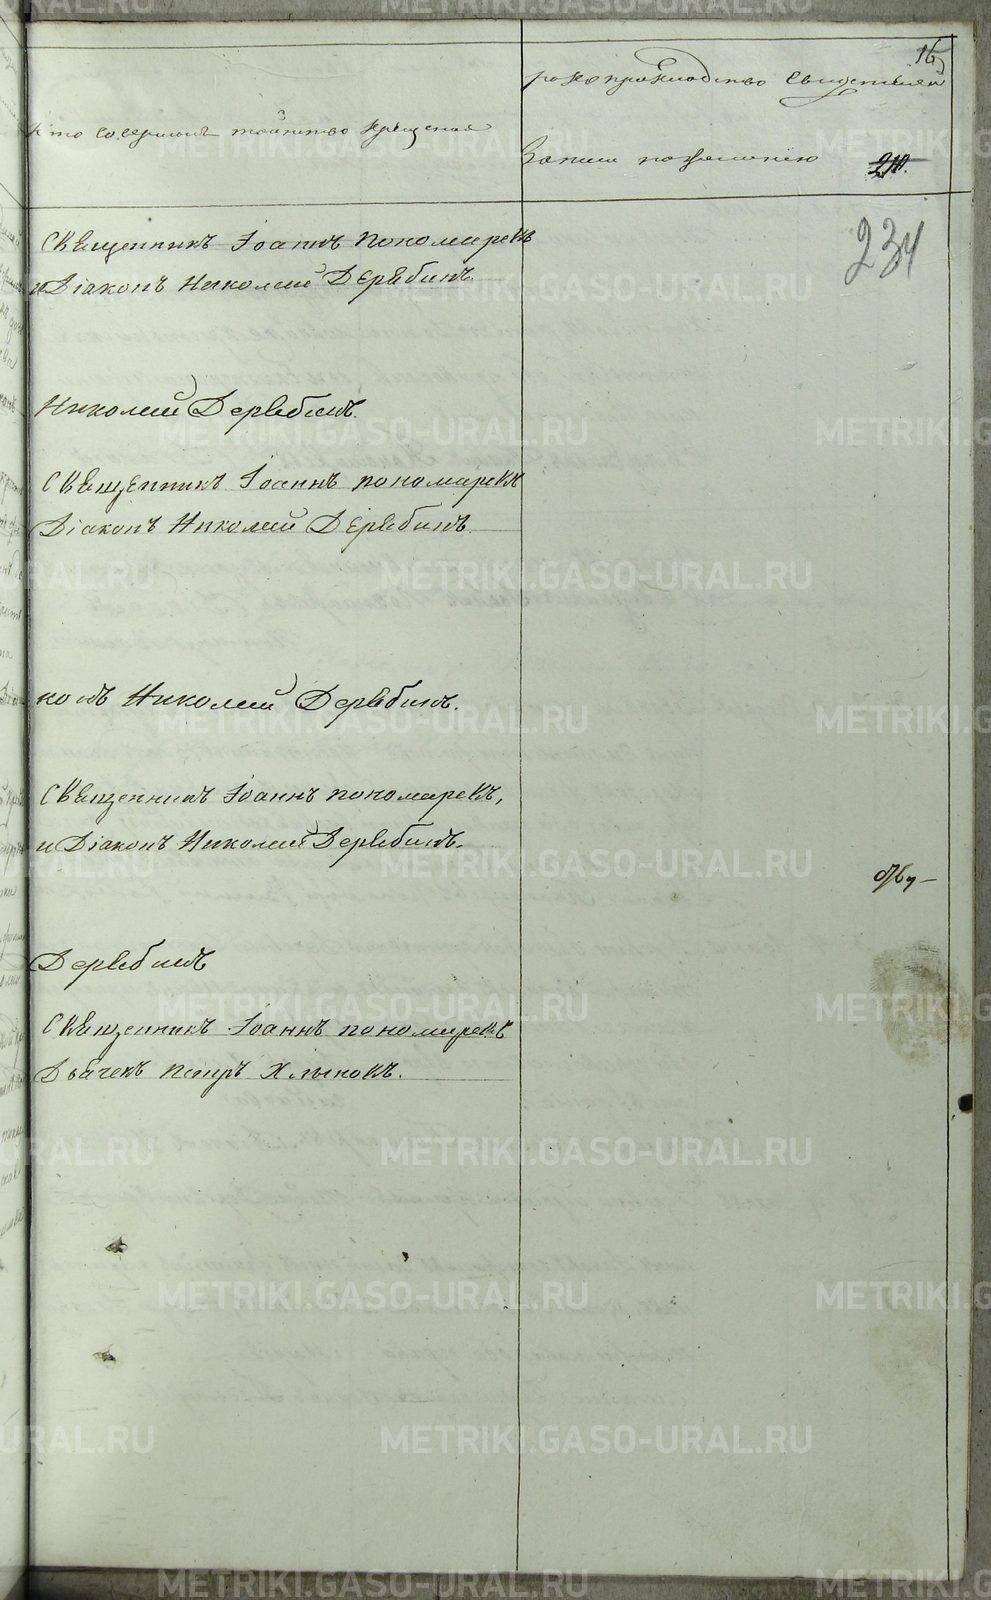 16
рукоприкладство свидѣтелей
Кто совершалъ таинство крещенія
Записи по желанію
210.
234
Священникъ Іоаннъ Пономаревъ
и Діаконъ Николай Дерябинъ.
Николай Дерябинъ.
Священникъ Іоаннъ Пономаревъ
Діаконъ Николай Дерябинъ.
конъ Николай Дерябинъ.
Священникъ Іоаннъ Пономаревъ,
и Діаконъ Николай Дерябинъ.
Дерябинъ
Священникъ Іоаннъ Пономаревъ
Дьячекъ Петръ Хлыновъ.
METRIKI.GASO-URAL.RU